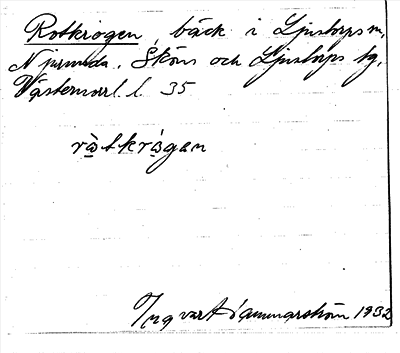 Rotkrogen, bäck i Ljustorps m,
Njurunda, Sköns och Ljustorps tg,
Västernorrl. l. 35
ròtkrógen
Ingvart Hammarström 1932